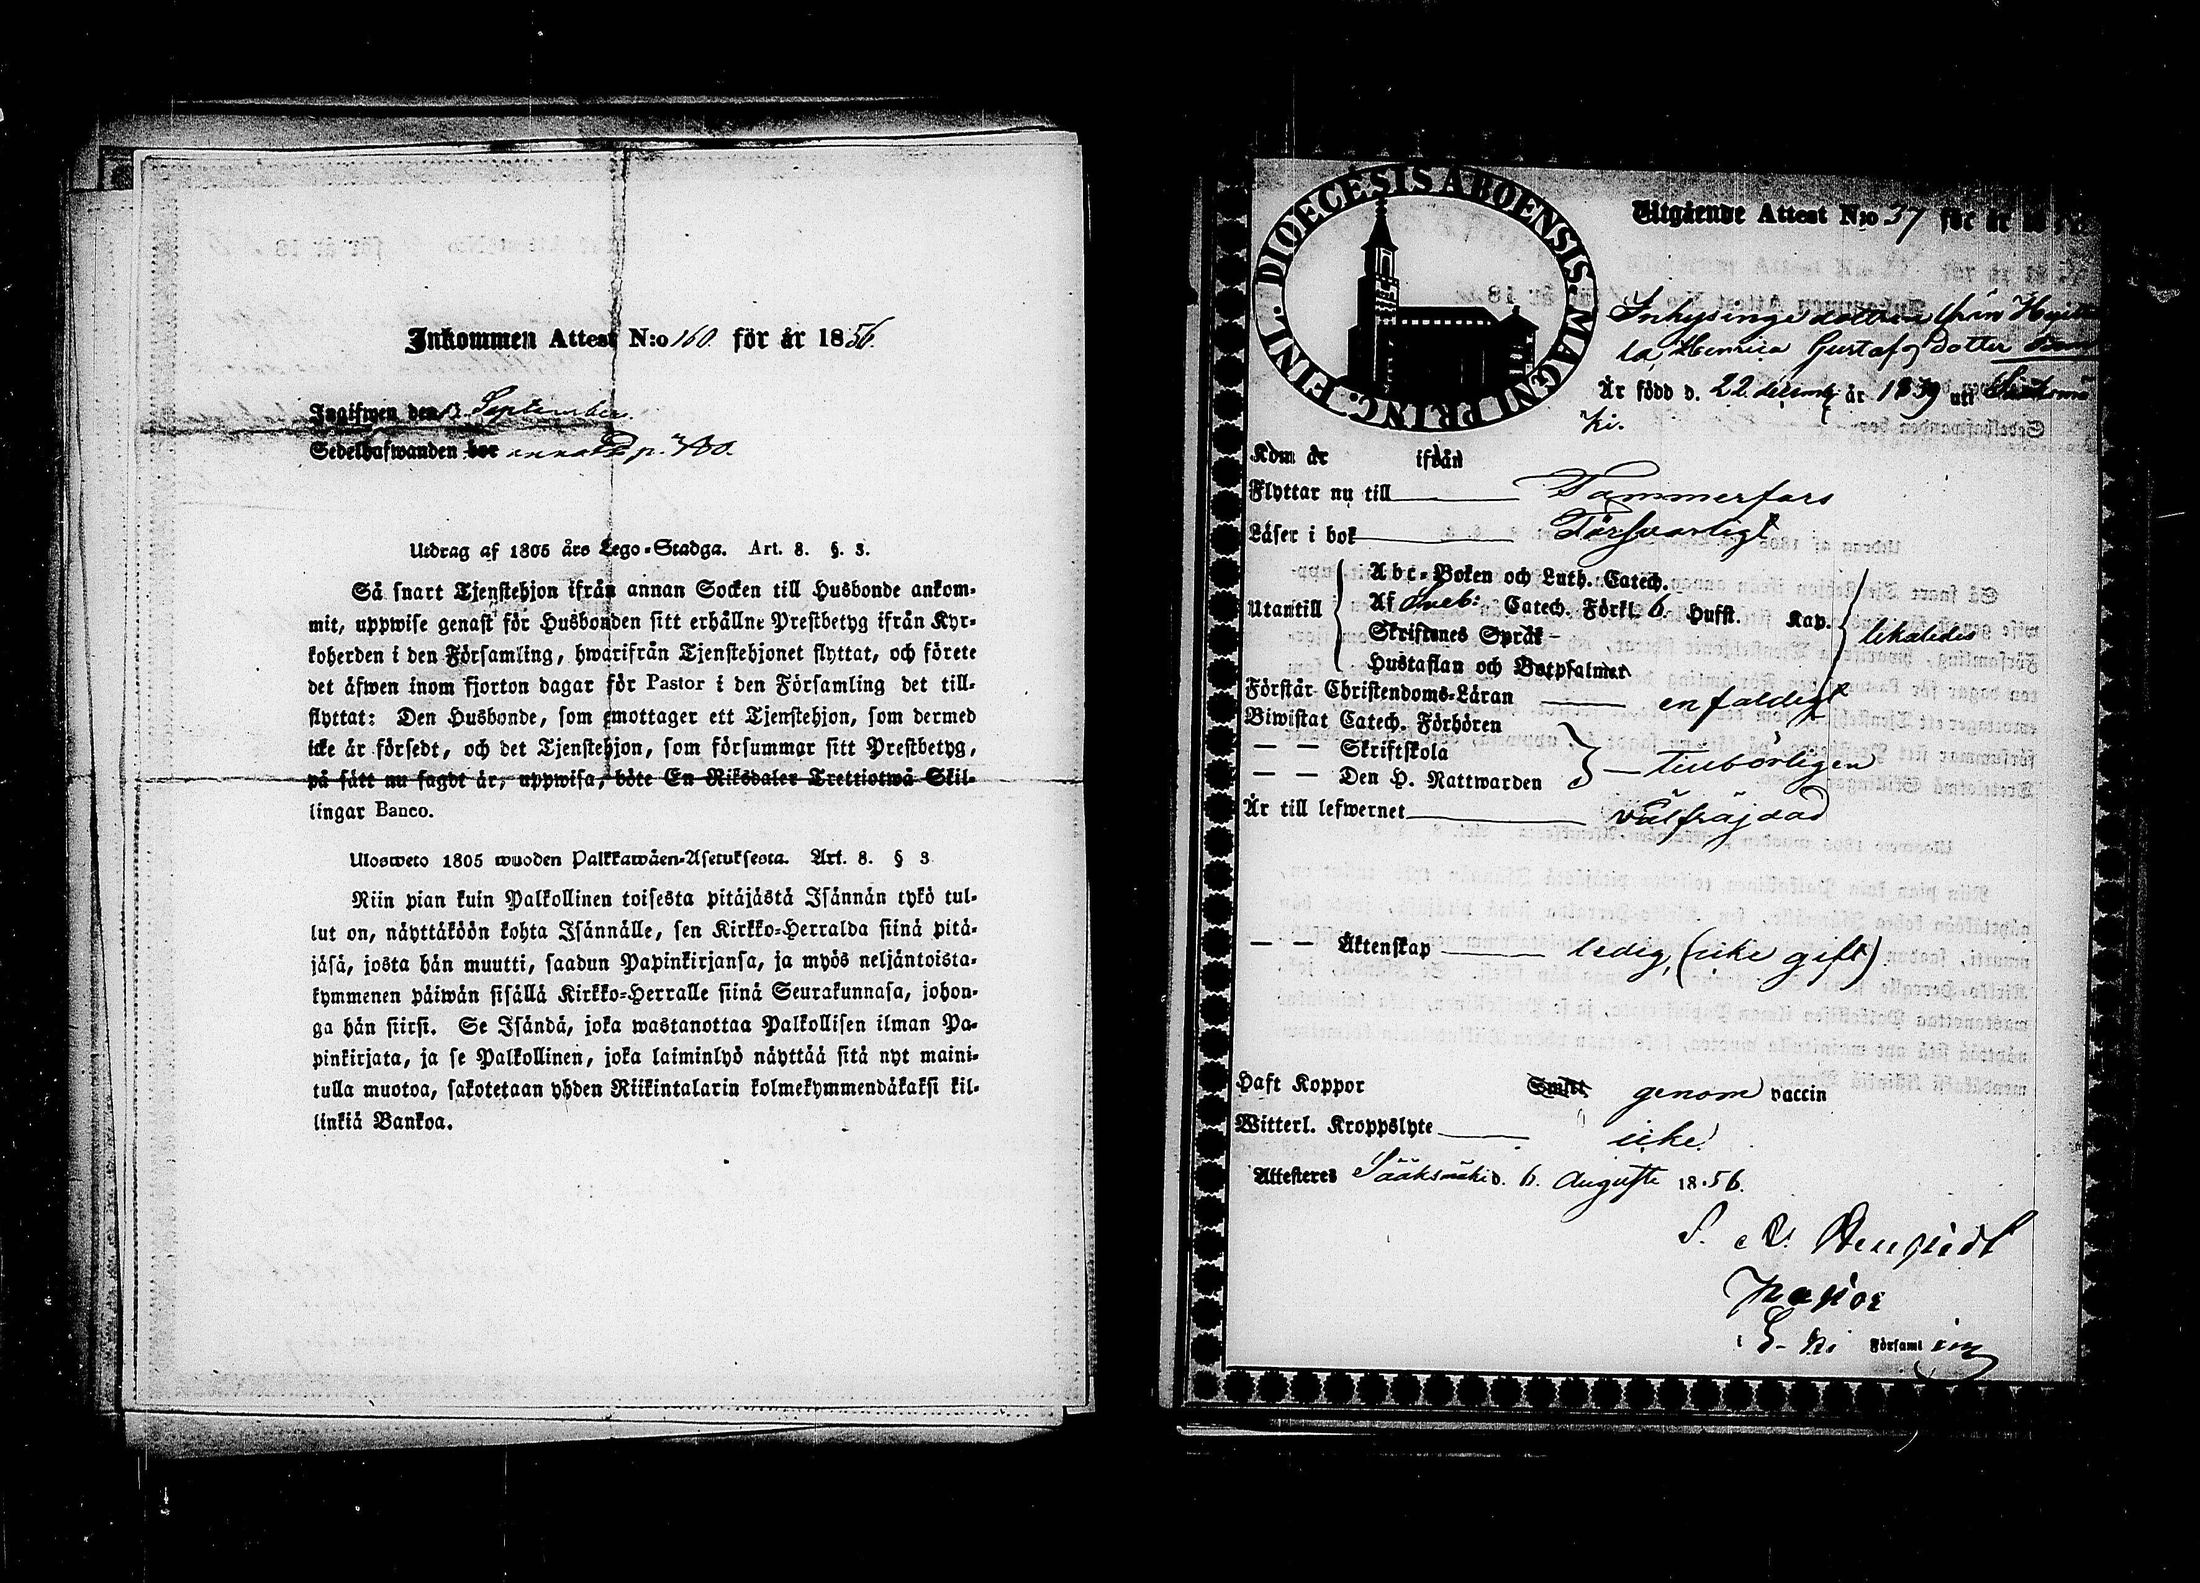 Inkommen Attest N:o 160. för år 1856.
Ingifwen den 12. September.
Sedelhafwanden hos p. 380.
Utdrag af 1805 års Lego-Stadga. Art. 8. §. 3.
Så snart Tjenstehjon ifrån annan Socken till Husbonde ankom-
mit, uppwise genast för Husbonden sitt erhållne Prestbetyg ifrån Kyr-
koherden i den Församling, hwarifrån Tjenstehjonet flyttat, och förete
det äfwen inom fjorton dagar för Pastor i den Församling det till-
flyttat: Den Husbonde, som emottager ett Tjenstehjon, som dermed
icke är försedt, och det Tjenstehjon, som försummar sitt Prestbetyg,
på sätt nu sagdt är, uppwisa, böte En Riksdaler Trettiotwå Skil-
lingar Banco.
Ulosweto 1805 wuoden Palkkawäen-Asetuksesta. Art. 8. § 3
Niin pian kuin Palkollinen toisesta pitäjästä Isännän tykö tul-
lut on, näyttäköön kohta Isännälle, sen Kirkko-Herralda siinä pitä-
jäsä, josta hän muutti, saadun Papinkirjansa, ja myös neljäntoista-
kymmenen päiwän sisällä Kirkko-Herralle siinä Seurakunnasa, johon-
ga hän siirsi. Se Isändä, joka wastanottaa Palkollisen ilman Pa-
pinkirjata, ja se Palkollinen, joka laiminlyö näyttää sitä nyt maini-
tulla muotoa, sakotetaan yhden Riikintalarin kolmekymmendäkaksi kil-
linkiä Bankoa.
FINL. DIOECESIS ABOENSIS. MAGNI PRINC.
Utgående Attest N:o 37 för år
Inhysinge dottren från
la, Henrica Gustafsdotter
Är född d. 22 decemb år 1839 uti Sääksmä
ki.
Kom år ifrån
Flyttar nu till Tammerfors
Läser i bok Försvarligt
Utantill
Abc-Boken och Luth. Catech.
Af Sveb: Catech. Förkl. 6. Hufst. Kap.
Skriftenes Språk
Hustaflan och Botpsalmer
likaledes
Förstår Christendoms-Läran enfaldigt
Biwistat Catech. Förhören
— — Skriftskola
— — Den H. Nattwarden
tillbörligen
Är till lefwernet välfräjdad
— — Äktenskap ledig, (icke gift)
Haft Koppor genom vaccin
Witterl. Kroppslyte icke.
Attesteres Sääksmäki d. 6. Augusti 1856.
S. A.
i S-ki Församl ing